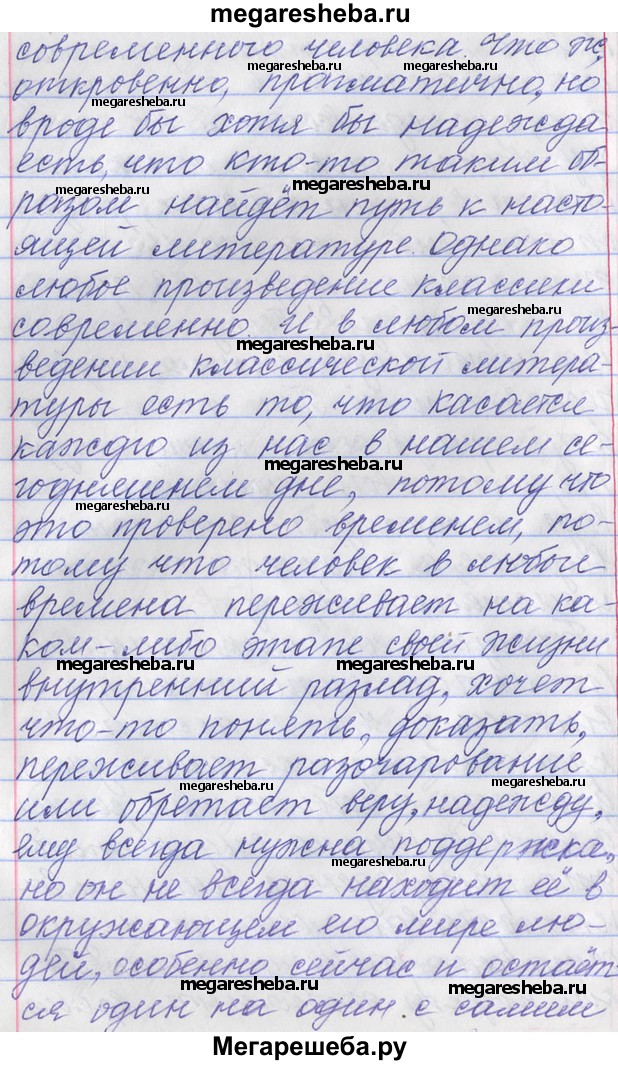 megaresheba.ru
современного человека. Что ж,
megaresheba.ru
откровенно, прагматично, но
megaresheba.ru
вроде бы хотя бы надежда
megaresheba.ru
есть, что кто-то таким об-
megaresheba.ru
megaresheba.ru
разом найдёт путь к насто-
ящей литературе. Однако
любое произведение классики
megaresheba.ru
современно. И в любом произ-
megaresheba.ru
ведении классической литера-
туры есть то, что касается
каждого из нас в нашем се-
megaresheba.ru
годняшнем дне, потому что
megaresheba.ru
это проверено временем, по-
тому что человек в любые
времена переживает на ка-
ком-либо этапе своей жизни
megaresheba.ru megaresheba.ru
внутренний разлад, хочет
что-то понять, доказать,
переживает разочарование
megaresheba.ru megaresheba.ru
или обретает веру, надежду,
ему всегда нужна поддержка,
megaresheba.ru
но он не всегда находит её в
окружающем его мире лю-
дей, особенно сейчас и остаёт
megaresheba.ru
ся один на один с самим
Мегарешеба.ру